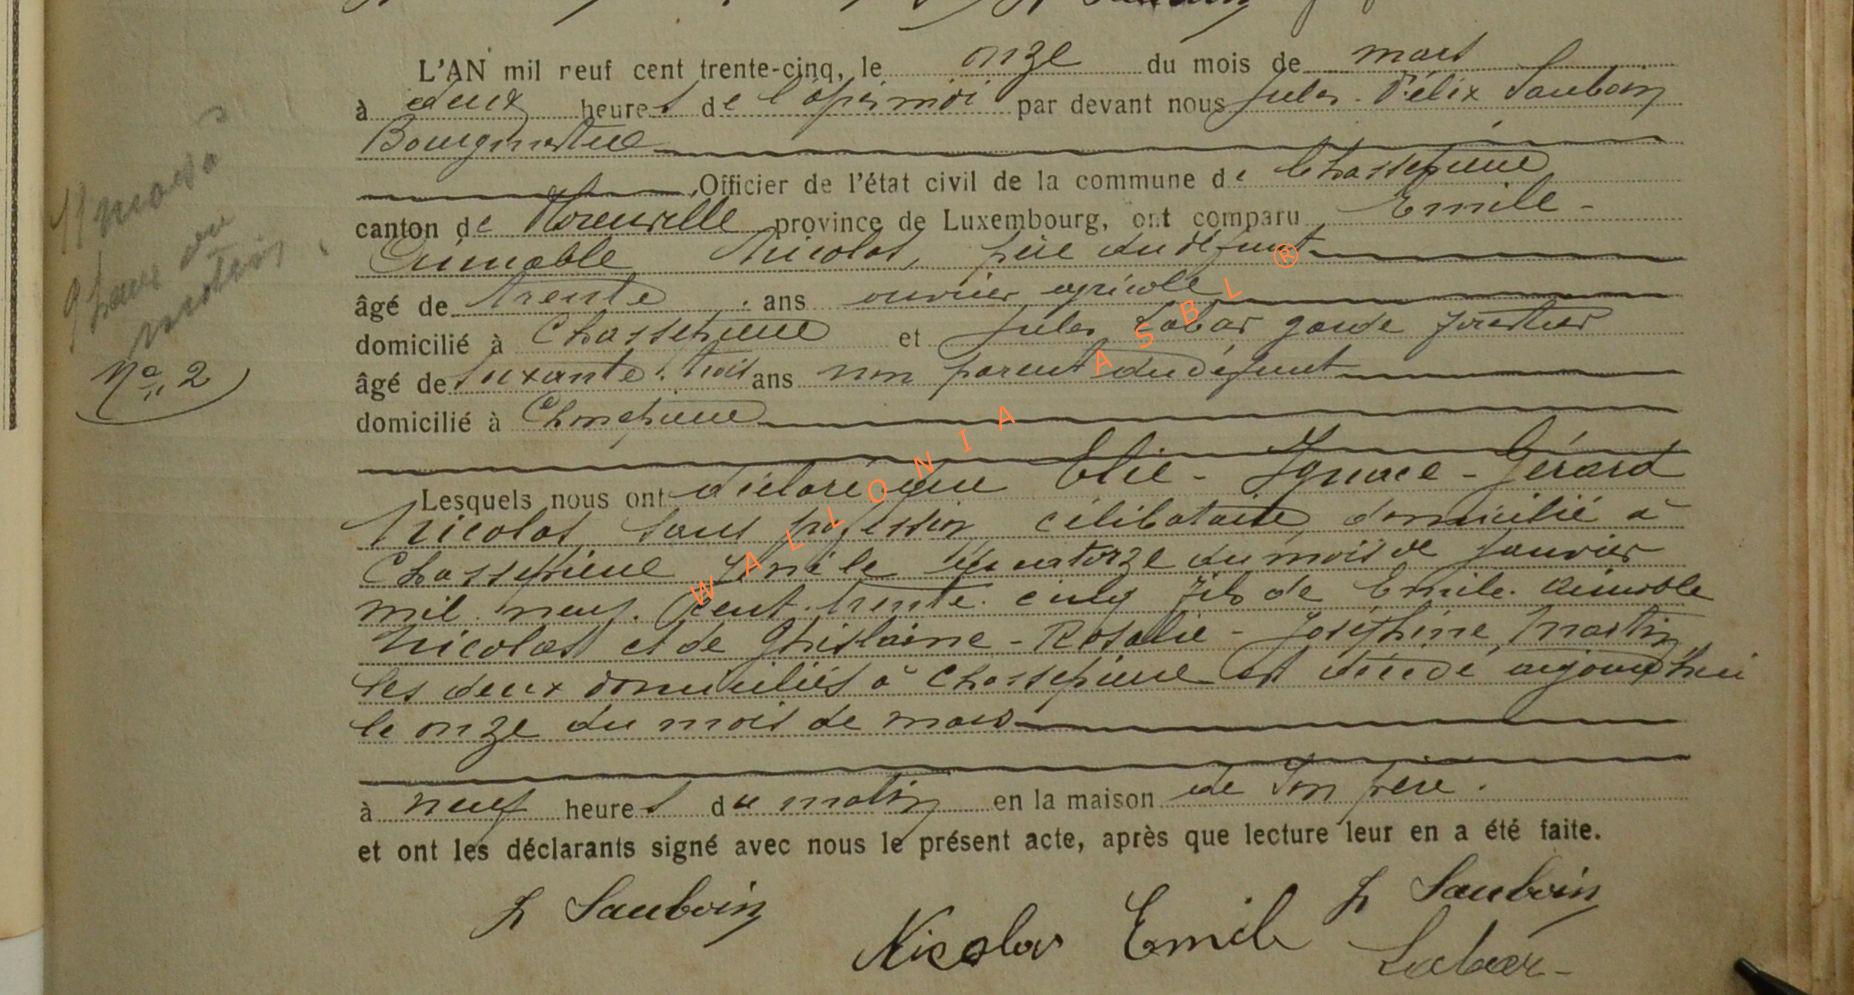 L'AN mil neuf cent trente-cinq, le onze du mois de mars
à deux heures de l'après midi par devant nous Jules - Félix Sauboin
Bourgmestre
Officier de l'état civil de la commune de Chassepierre
canton de Florenville province de Luxembourg, ont comparu Emile -
Aimable Nicolas, père du défunt
âgé de trente ans ouvrier agricole
domicilié à Chassepierre et Jules Labar garde forestier
âgé de soixante-trois ans non parent du défunt
domicilié à Chassepierre
Lesquels nous ont déclaré que Elie - Ignace - Gérard
Nicolas, sans profession, célibataire, domicilié à
Chassepierre y né le quatorze du mois de janvier
mil neuf cent trente cinq fils de Emile Aimable
Nicolas et de Ghislaine - Rosalie - Joséphine Martin
les deux domiciliés à Chassepierre est décédé aujourd'hui
le onze du mois de mars
à neuf heures du matin en la maison de son père.
et ont les déclarants signé avec nous le présent acte, après que lecture leur en a été faite.
J Sauboin
Nicolas Emile
J Sauboin
Labar
11 mars à
9 heures du
matin
No 2
WALLONIA ASBL ®